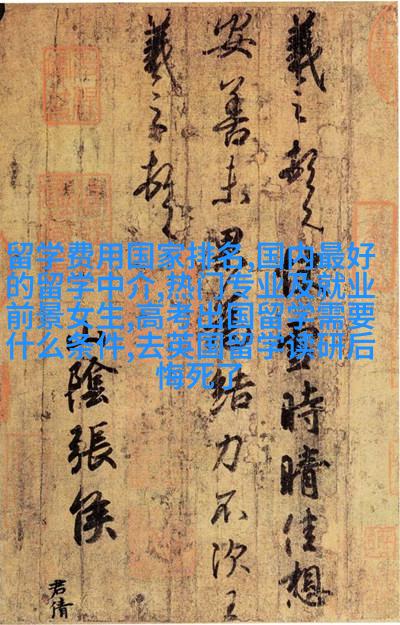 羲之頓首快雪時晴佳想
安善未果為結力不次王
羲之頓首
山陰張侯
君倩
留学费用国家排名,国内最好
的留学中介,热门专业及就业
前景女生,高考出国留学需要
什么条件,去英国留学读研后
悔死了